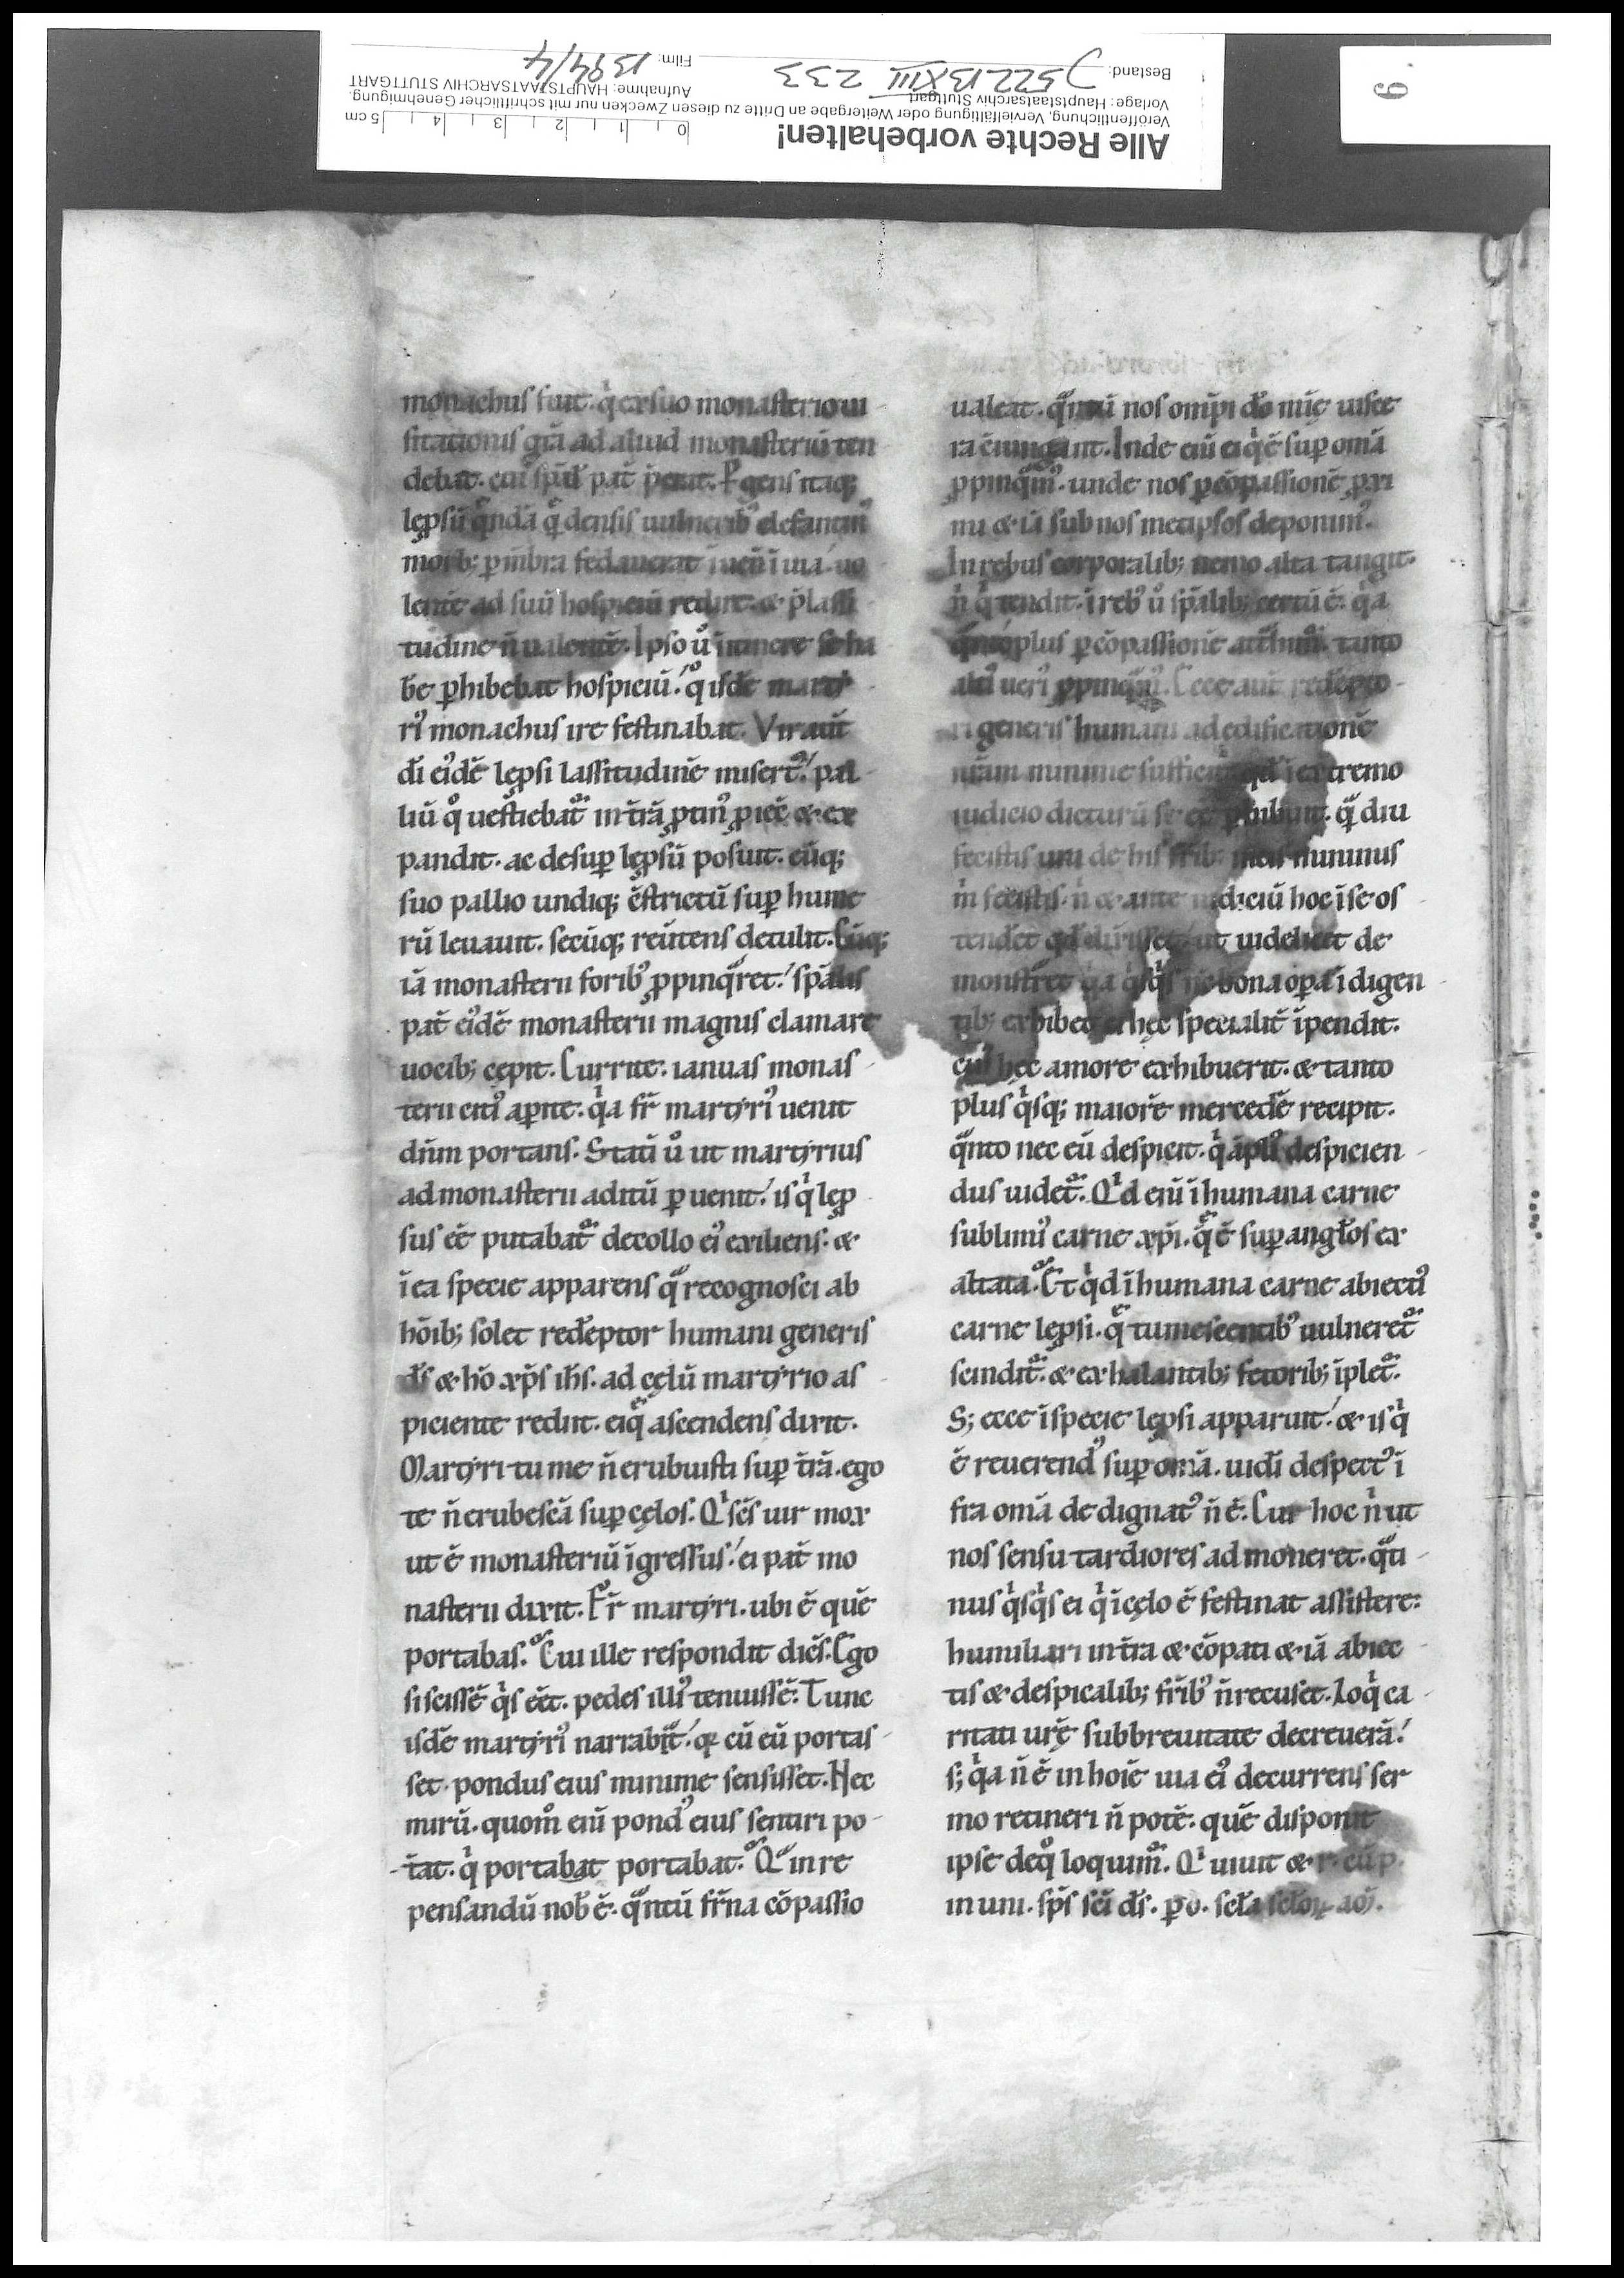 Alle Rechte vorbehalten!
Veröffentlichung, Vervielfältigung oder Weitergabe an Dritte zu diesen Zwecken nur mit schriftlicher Genehmigung.
Vorlage: Hauptstaatsarchiv Stuttgart
Aufnahme: HAUPTSTAATSARCHIV STUTTGART
Bestand: J 522 B XIII 233
Film: 1394/4
0 1 2 3 4 5 cm
9
monachus fuit. q̇ ex suo monasterio ui
sitationis gr̄a ad aliud monasteriū ten
debat. cui sp̄al' pat̄ p̄erat. P̱gens itaq;
lępsū q̄ndā q̄ densis uulnerib᷒ elefantin᷒
morb; p̱ mēbra fedauerat īuenīt ī uia uo
lentē ad suū hospiciū redire. & p̄ lassi
tudine n̄ ualentē. Ipso ů itinere se ha
b̄e p̱hibebat hospiciū. q̊ isdē marty
ri᷒ monachus ire festinabat. Vir aut̄
dī ei᷒dē lepsi lassitudinē misert᷒. pal
liū q̊ uestiebat᷑ in tr̄ā ꝓtin᷒ ꝓiec̄ & ex
pandit. ac desup̱ lępsū posuit. eūq;
suo pallio undiq; c̄strictū sup̱ hume
rū leuauit. secūq; reūtens detulit. Cūq;
iā monasterii forib᷒ ꝓpinq̄ret. sp̄alis
pat̄ ei᷒dē monasterii magnis clamare
uocib; cępit. Currite. ianuas monas
terii citi᷒ ap̱ite. q̇a fr̄ martyri᷒ uenit
dn̄m portans. Stati̅ ů ut martyrius
ad monasterii aditū p̱uenit. is q̇ lęp
sus eē putabat᷑ de collo ei᷒ exiliens. &
ī ea specie apparens q̄ recognosci ab
hōib; solet redēptor humani generis
ds̄ & hō xp̄s ih̄s. ad cęlū martyrio as
piciente rediit. eiq̄ ascendens dixit.
Martyri tu me n̄ erubuisti sup̱ tr̄ā. ego
te n̄ erubescā sup̱ cęlos. Q̇ sc̄s uir mox
ut ē monasteriū īgressus. ei pat̄ mo
nasterii dixit. Fr̄ martyri. ubi ē quē
portabas. Cui ille respondit dic̄s. Ego
si scissē q̇s eēt. pedes illi᷒ tenuissē. Tunc
isdē martyri᷒ narrabat. qꝫ cū eū portas
set. pondus eius minime sensisset. Nec
mirū. quom̊ eni̅ pond᷒ eius sentiri po
tat. q̇ portabat portabat. Q̄ in re
pensandū nob̄ ē. q̄ntū fr̄na cōpassio
ualeat. q̄ntū nos omp̄i dō mi̅ę uisce
ra c̄iungant. Inde eni̅ ei q̇ ē sup̱ om̄ā
ꝓpinq̄m᷒. unde nos p̱ cōpassionē ꝓxi
mi & iā sub nos metipsos deponim᷒.
In rebus corporalib; nemo alta tangit.
n̄ q̇ tendit. ī reb᷒ ů sp̄alib; certū ē. q̇a
q̄nto plus p̱ cōpassionē atthim᷒. tanto
alti᷒ ueri᷒ ꝓpinq̄m᷒. Ecce aut̄ redēpto
ri generis humani ad edificationē
nr̄am minime sufficit qd̄ ī extremo
iudicio dicturū se eē p̱hibuit. q̄ diu
fecistis uni de his fr̄ib; meis minimis
m̄ fecistis. n̄ & ante iudiciū hoc ī se os
tendet qd̄ dixisset. ut uidelicet de
monstret q̇a q̇sq̇s n̄c bona op̱a īdigen
tib; exhibet ei hęc specialit̄ īpendit.
cui᷒ hęc amore exhibuerit. & tanto
plus q̇sq; maiorē mercedē recipit.
q̄nto nec eū despicit. q̇ āpli᷒ despicien
dus uidet᷑. Q̇d eni̅ ī humana carne
sublimi᷒ carne xp̄i. q̄ ē sup̱ anglos ex
altata. Et q̇d ī humana carne abiecti᷒
carne lępsi. q̄ tumescentib᷒ uulnerēt᷑
scindit᷑. & exhalantib; fetorib; īplet᷑.
S; ecce ī specie lępsi apparuit. & is q̇
ē reuerend᷒ sup̱ om̄ā. uidi̅ despect᷒ ī
fra om̄ā dedignat᷒ n̄ ē. Cur hoc n̄ ut
nos sensu tardiores admoneret. q̄ti
nus q̇sq̇s ei q̇ ī cęlo ē festinat assistere.
humiliari in tr̄a & cōpati & iā abiec
tis & despicalib; fr̄ib᷒ n̄ recuset. Loq̇ ca
ritati ur̄ę sub breuitate decreuerā.
s; q̇a n̄ ē in hoīe uia ei᷒ decurrens ser
mo retineri n̄ potē. quē disponit
ipse de q̊ loquim᷑. Q̇ uiuit & r. cū p.
in uni. sp̄s sc̄i ds̄. p̱ o. sc̄la